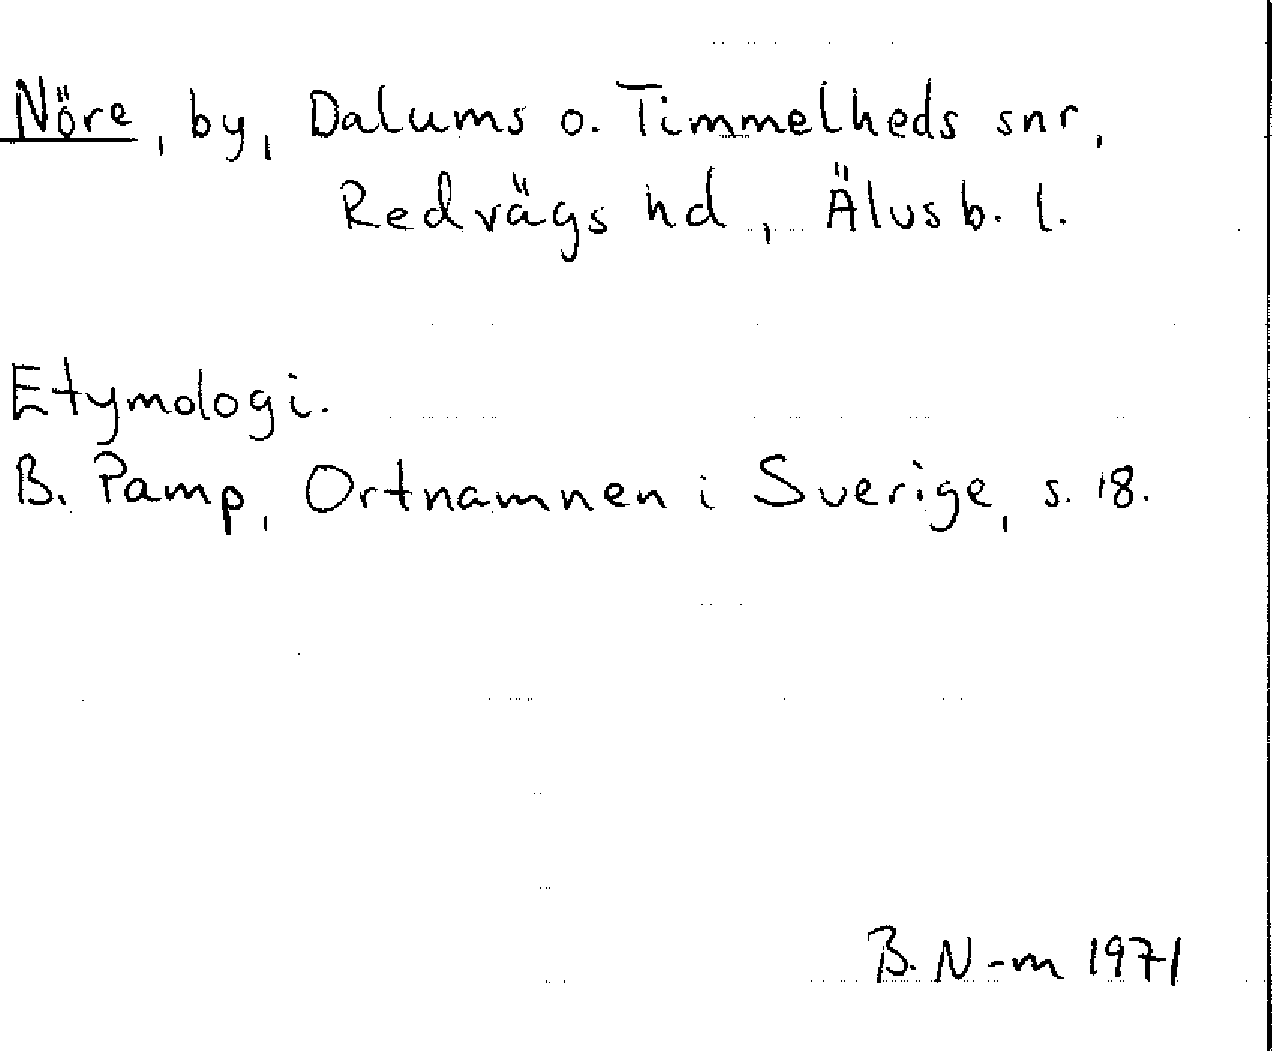 Nöre, by, Dalums o. Timmelheds snr,
Redvägs hd, Älvsb. l.
Etymologi.
B. Pamp, Ortnamnen i Sverige, s. 18.
B. N-m 1971